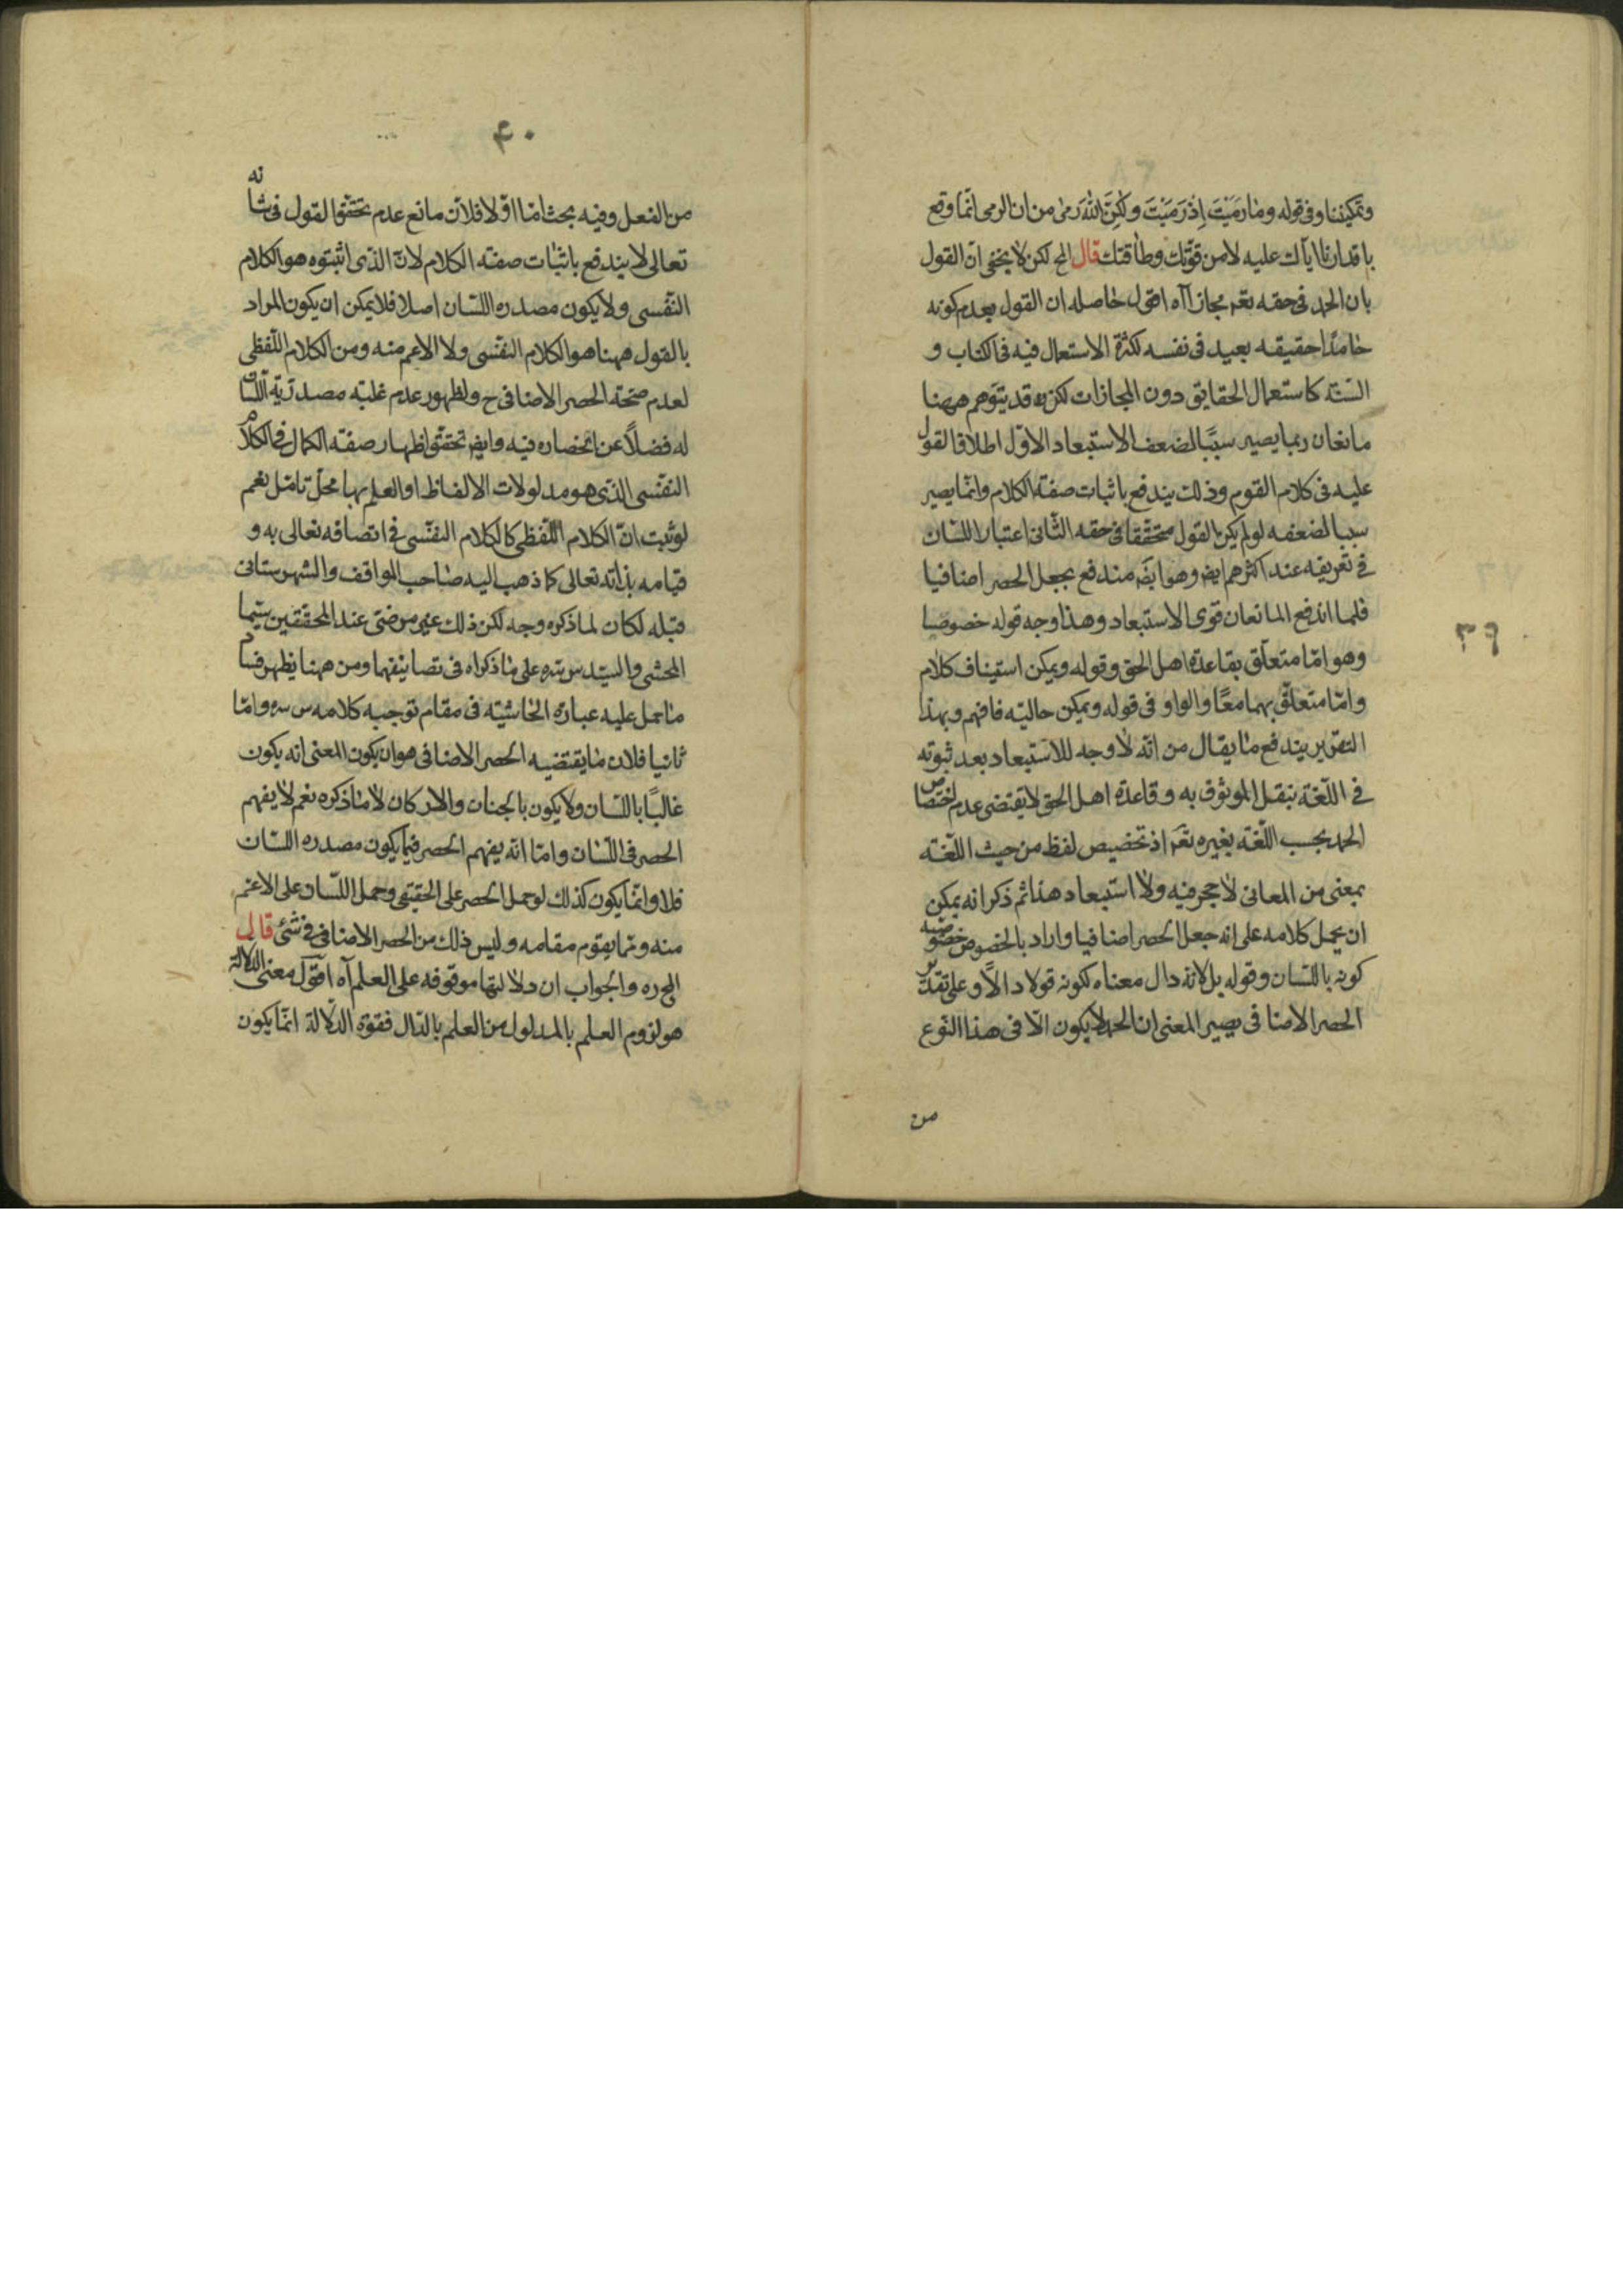 وتمكيننا وفى قوله وما رَمَيْتَ اِذْ رَمَيْتَ ولٰكِنَّ اللّٰهَ رَمىٰ من ان الرمى انّما وقع
باقدارنا اياك عليه لا من قوّتك وطاقتك قال المح لكن لا يخفى انّ القول
بان الحمد فى حقه تعم مجاز اآه اقول حاصله ان القول بعدم كونه
حامدًا حقيقه بعيد فى نفسه لكثرة الاستعمال فيه فى الكتاب و
السّنة كاستعمال الحقايق دون المجازات لكنه قد يتوهم ههنا
مانعان ربما يصير سببًا لضعف الاستبعاد الاوّل اطلاق القول
عليه فى كلام القوم وذلك يندفع باثبات صفة الكلام وانّما يصير
سببا لضعفه لو لم يكن القول متحققا فى حقه الثّانى اعتبار اللسّان
فى تعريفه عند اكثرهم ايض وهو ايضَ مندفع بجعل الحصر اضافيا
فلما اندفع المانعان قوى الاستبعاد وهذا وجه قوله خصوصا
وهو امّا متعلّق بقاعدة اهل الحق وقوله ويمكن استيناف كلام
وامّا متعلّق بهما معًا والواو فى قوله ويمكن حاليّه فافهم وبهذا
التقرير يندفع ما يقال من انّه لا وجه للاستبعاد بعد ثبوته
فى اللّغة بنقل الموثوق به وقاعدة اهل الحق لا يقتضى عدم اختصاص
الحمد بحسب اللّغة بغيره تعَم اذ تخصيص لفظ من حيث اللّغة
بمعنى من المعانى لا حجر فيه ولا استبعاد هذا ثم ذكر انه يمكن
ان يحمل كلامه على انه جعل الحصر اضافيا واراد بالخصوص خصوصية
كونه باللسّان وقوله بل لانّه دال معناه لكونه قولا دالّاً وعلى تقدير
الحصر الاضافى يصير المعنى ان الحمد لا يكون الّا فى هذا النّوع
من
٣٩
٤٠
من الفعل وفيه بحث امّا اوّلا فلان مانع عدم تحقق القول فى شانه
تعالى لا يندفع باثبات صفة الكلام لانّ الذى اثبتوه هو الكلام
النّفسى ولا يكون مصدره اللسّان اصلا فلا يمكن ان يكون المراد
بالقول ههنا هو الكلام النفّسى ولا الاعم منه ومن الكلام اللّفظى
لعدم صحّة الحصر الاضافى ح ولظهور عدم غلبة مصدريّة اللسّان
له فضلاً عن انحصاره فيه وايض تحقق اظهار صفة الكمال فى الكلام
النفّسى الذى هو مدلولات الالفاظ او العلم بها محلّ تامّل نعم
لو ثبت انّ الكلام اللّفظى كالكلام النفّسى فى اتصافه تعالى به و
قيامه بذاته تعالى كما ذهب اليه صاحب المواقف والشهرستانى
قبله لكان لما ذكره وجه لكن ذلك غير مرضىّ عند المحققين سيّما
المحشى والسيّد س سره على ما ذكراه فى تصانيفهما ومن ههنا يظهر فساد
ما حمل عليه عبارة الحاشيّة فى مقام توجيه كلامه س سره وامّا
ثانيا فلان ما يقتضيه الحصر الاضافى هو ان يكون المعنى انه يكون
غالبًا باللسّان ولا يكون بالجنان والاركان لا ما ذكره نعم لا يفهم
الحصر فى اللسّان وامّا انّه يفهم الحصر فيما يكون مصدره اللسّان
فلا وانّما يكون كذلك لو حمل الحصر على الحقيقى وحمل اللسّان على الاعم
منه وممّا يقوم مقامه وليس ذلك من الحصر الاضافى فى شئ قال
المح ره والجواب ان دلالتها موقوفه على العلم آه اقول معنى الدلالة
هو لزوم العلم بالمدلول من العلم بالدّال فقوة الدّلالة انّما يكون